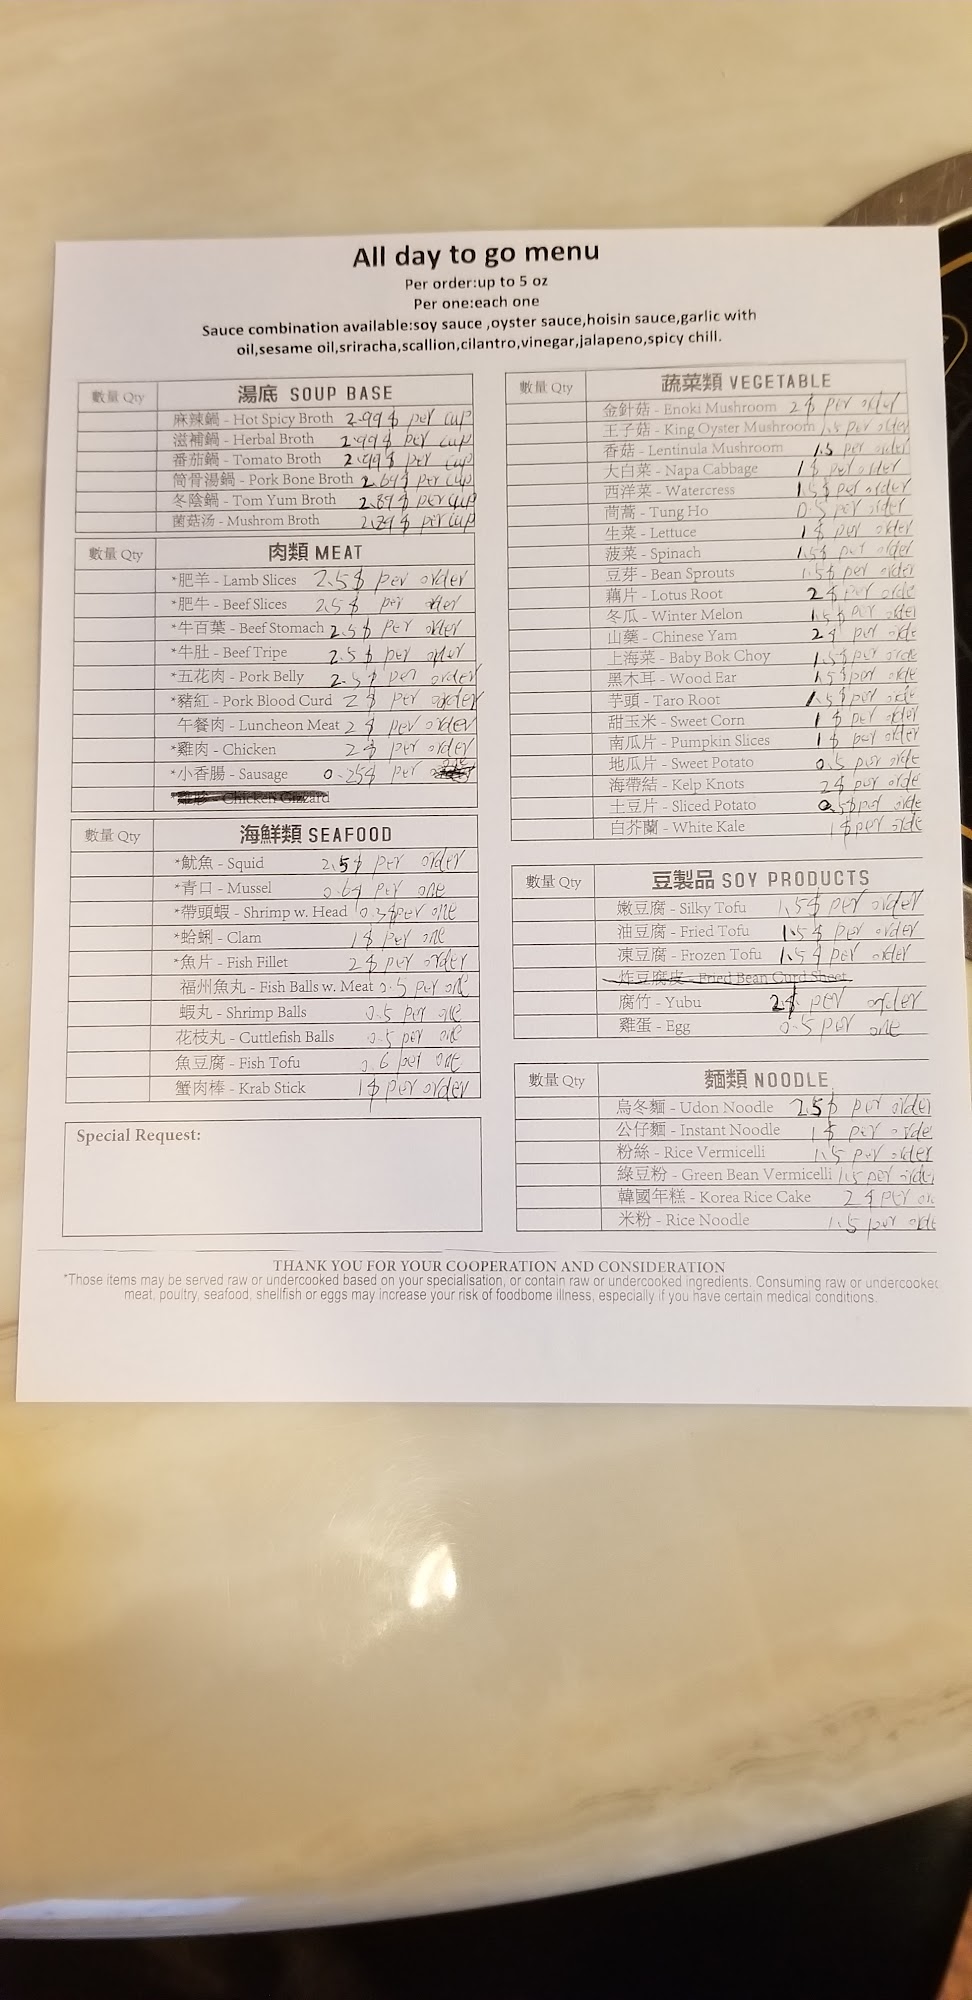 All day to go menu
Per order:up to 5 oz
Per one:each one
Sauce combination available:soy sauce ,oyster sauce,hoisin sauce,garlic with
oil,sesame oil,sriracha,scallion,cilantro,vinegar,jalapeno,spicy chill.
數量 Qty 湯底 SOUP BASE
麻辣鍋 - Hot Spicy Broth 2.99 $ per cup
滋補鍋 - Herbal Broth 2.99 $ per cup
番茄鍋 - Tomato Broth 2.99 $ per cup
筒骨湯鍋 - Pork Bone Broth 2.69 $ per cup
冬陰鍋 - Tom Yum Broth 2.89 $ per cup
菌菇汤 - Mushrom Broth 2.89 $ per cup
數量 Qty 肉類 MEAT
*肥羊 - Lamb Slices 2.5 $ per order
*肥牛 - Beef Slices 2.5 $ per order
*牛百葉 - Beef Stomach 2.5 $ per order
*牛肚 - Beef Tripe 2.5 $ per order
*五花肉 - Pork Belly 2.5 $ per order
*豬紅 - Pork Blood Curd 2 $ per order
午餐肉 - Luncheon Meat 2 $ per order
*雞肉 - Chicken 2 $ per order
*小香腸 - Sausage 0.25 $ per one
Chicken Gizzard
數量 Qty 海鮮類 SEAFOOD
*魷魚 - Squid 2.5 $ per order
*青口 - Mussel 0.6 $ per one
*帶頭蝦 - Shrimp w. Head 0.3 $ per one
*蛤蜊 - Clam 1 $ per one
*魚片 - Fish Fillet 2 $ per order
福州魚丸 - Fish Balls w. Meat 0.5 per one
蝦丸 - Shrimp Balls 0.5 per one
花枝丸 - Cuttlefish Balls 0.5 per one
魚豆腐 - Fish Tofu 0.6 per one
蟹肉棒 - Krab Stick 1 $ per order
Special Request:
數量 Qty 蔬菜類 VEGETABLE
金針菇 - Enoki Mushroom 2 $ per order
王子菇 - King Oyster Mushroom 1.5 per order
香菇 - Lentinula Mushroom 1.5 per order
大白菜 - Napa Cabbage 1 $ per order
西洋菜 - Watercress 1.5 $ per order
茼蒿 - Tung Ho 0.5 per order
生菜 - Lettuce 1 $ per order
菠菜 - Spinach 1.5 $ per order
豆芽 - Bean Sprouts 1.5 $ per order
藕片 - Lotus Root 2 $ per orde
冬瓜 - Winter Melon 1.5 $ per order
山藥 - Chinese Yam 2 $ per orde
上海菜 - Baby Bok Choy 1.5 $ per orde
黑木耳 - Wood Ear 1.5 $ per orde
芋頭 - Taro Root 1.5 $ per orde
甜玉米 - Sweet Corn 1 $ per order
南瓜片 - Pumpkin Slices 1 $ per order
地瓜片 - Sweet Potato 0.5 per orde
海帶結 - Kelp Knots 2 $ per orde
土豆片 - Sliced Potato 0.5 $ per orde
白芥蘭 - White Kale 1 $ per orde
數量 Qty 豆製品 SOY PRODUCTS
嫩豆腐 - Silky Tofu 1.5 $ per order
油豆腐 - Fried Tofu 1.5 $ per order
凍豆腐 - Frozen Tofu 1.5 $ per order
炸豆腐皮 - Fried Bean Curd Sheet
腐竹 - Yubu 2 $ per order
雞蛋 - Egg 0.5 per one
數量 Qty 麵類 NOODLE
烏冬麵 - Udon Noodle 2.5 $ per order
公仔麵 - Instant Noodle 1 $ per orde
粉絲 - Rice Vermicelli 1.5 per order
綠豆粉 - Green Bean Vermicelli 1.5 per order
韓國年糕 - Korea Rice Cake 2 $ per
米粉 - Rice Noodle 1.5 per orde
THANK YOU FOR YOUR COOPERATION AND CONSIDERATION
*Those items may be served raw or undercooked based on your specialisation, or contain raw or undercooked ingredients. Consuming raw or undercooked
meat, poultry, seafood, shellfish or eggs may increase your risk of foodborne illness, especially if you have certain medical conditions.